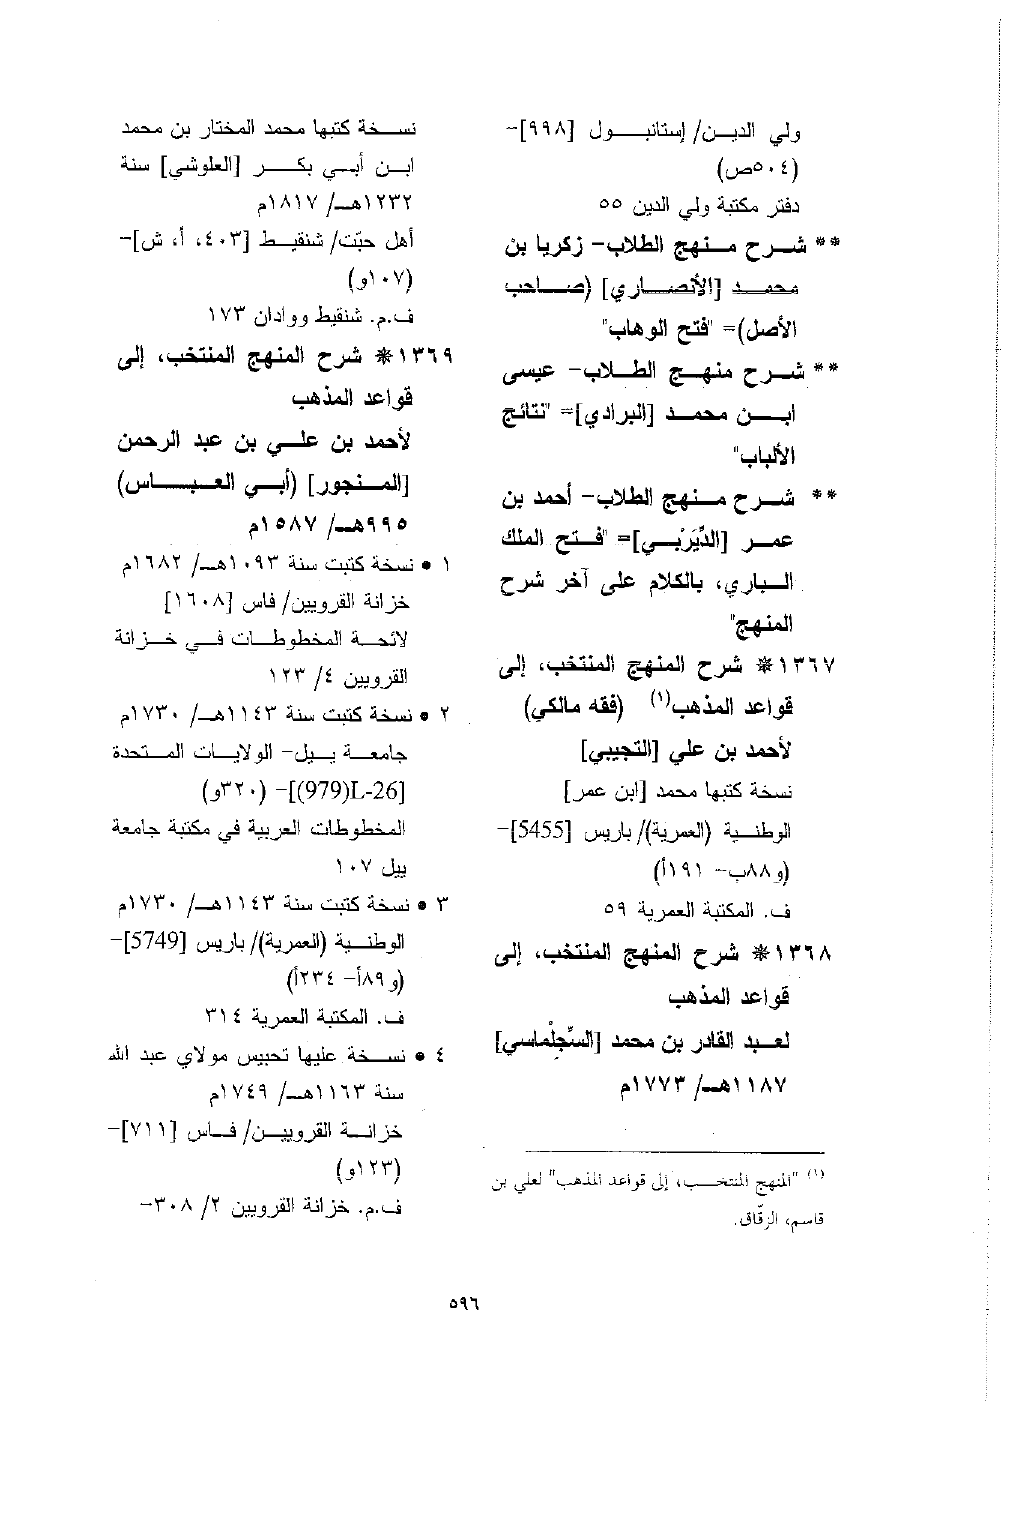 ولي الديـــن/ إستانبـــول [٩٩٨]-
(٥٠٤ص)
دفتر مكتبة ولي الدين ٥٥
** شـــرح مـــنهج الطلاب- زكريا بن
محمـــد [الأنصـــاري] (صـــاحب
الأصل)= "فتح الوهاب"
** شـــرح منهـــج الطـــلاب- عيسى
ابـــن محمـــد [البرادي]= "نتائج
الألباب"
** شـــرح مـــنهج الطلاب- أحمد بن
عمـــر [الدِّيَرْبـــي]= "فـــتح الملك
البـــاري، بالكلام على آخر شرح
المنهج"
١٣٦٧* شرح المنهج المنتخب، إلى
قواعد المذهب(١) (فقه مالكي)
لأحمد بن علي [التجيبي]
نسخة كتبها محمد [ابن عمر]
الوطنـــية (العمرية)/ باريس [5455]-
(و٨٨ب- ١٩١أ)
ف. المكتبة العمرية ٥٩
١٣٦٨* شرح المنهج المنتخب، إلى
قواعد المذهب
لعـــبد القادر بن محمد [السِّجِلْماسي]
١١٨٧هـ/ ١٧٧٣م
(١) "المنهج المنتخـــب، إلى قواعد المذهب" لعلي بن
قاسم، الزقّاق.
نســـخة كتبها محمد المختار بن محمد
ابـــن أبـــي بكـــر [العلوشي] سنة
١٢٣٢هـ/ ١٨١٧م
أهل حبّت/ شنقيـــط [٤٠٣، أ، ش]-
(١٠٧و)
ف.م. شنقيط ووادان ١٧٣
١٣٦٩* شرح المنهج المنتخب، إلى
قواعد المذهب
لأحمد بن علـــي بن عبد الرحمن
[المـــنجور] (أبـــي العـــباس)
٩٩٥هـ/ ١٥٨٧م
١ • نسخة كتبت سنة ١٠٩٣هـ/ ١٦٨٢م
خزانة القرويين/ فاس [١٦٠٨]
لائحـــة المخطوطـــات فـــي خـــزانة
القرويين ٤/ ١٢٣
٢ • نسخة كتبت سنة ١١٤٣هـ/ ١٧٣٠م
جامعـــة ييـــل- الولايـــات المـــتحدة
[L-26(979)]- (٣٢٠و)
المخطوطات العربية في مكتبة جامعة
ييل ١٠٧
٣ • نسخة كتبت سنة ١١٤٣هـ/ ١٧٣٠م
الوطنـــية (العمرية)/ باريس [5749]-
(و٨٩أ- ٢٣٤أ)
ف. المكتبة العمرية ٣١٤
٤ • نســـخة عليها تحبيس مولاي عبد الله
سنة ١١٦٣هـ/ ١٧٤٩م
خزانـــة القرويـــين/ فـــاس [٧١١]-
(١٢٣و)
ف.م. خزانة القرويين ٢/ ٣٠٨-
٥٩٦